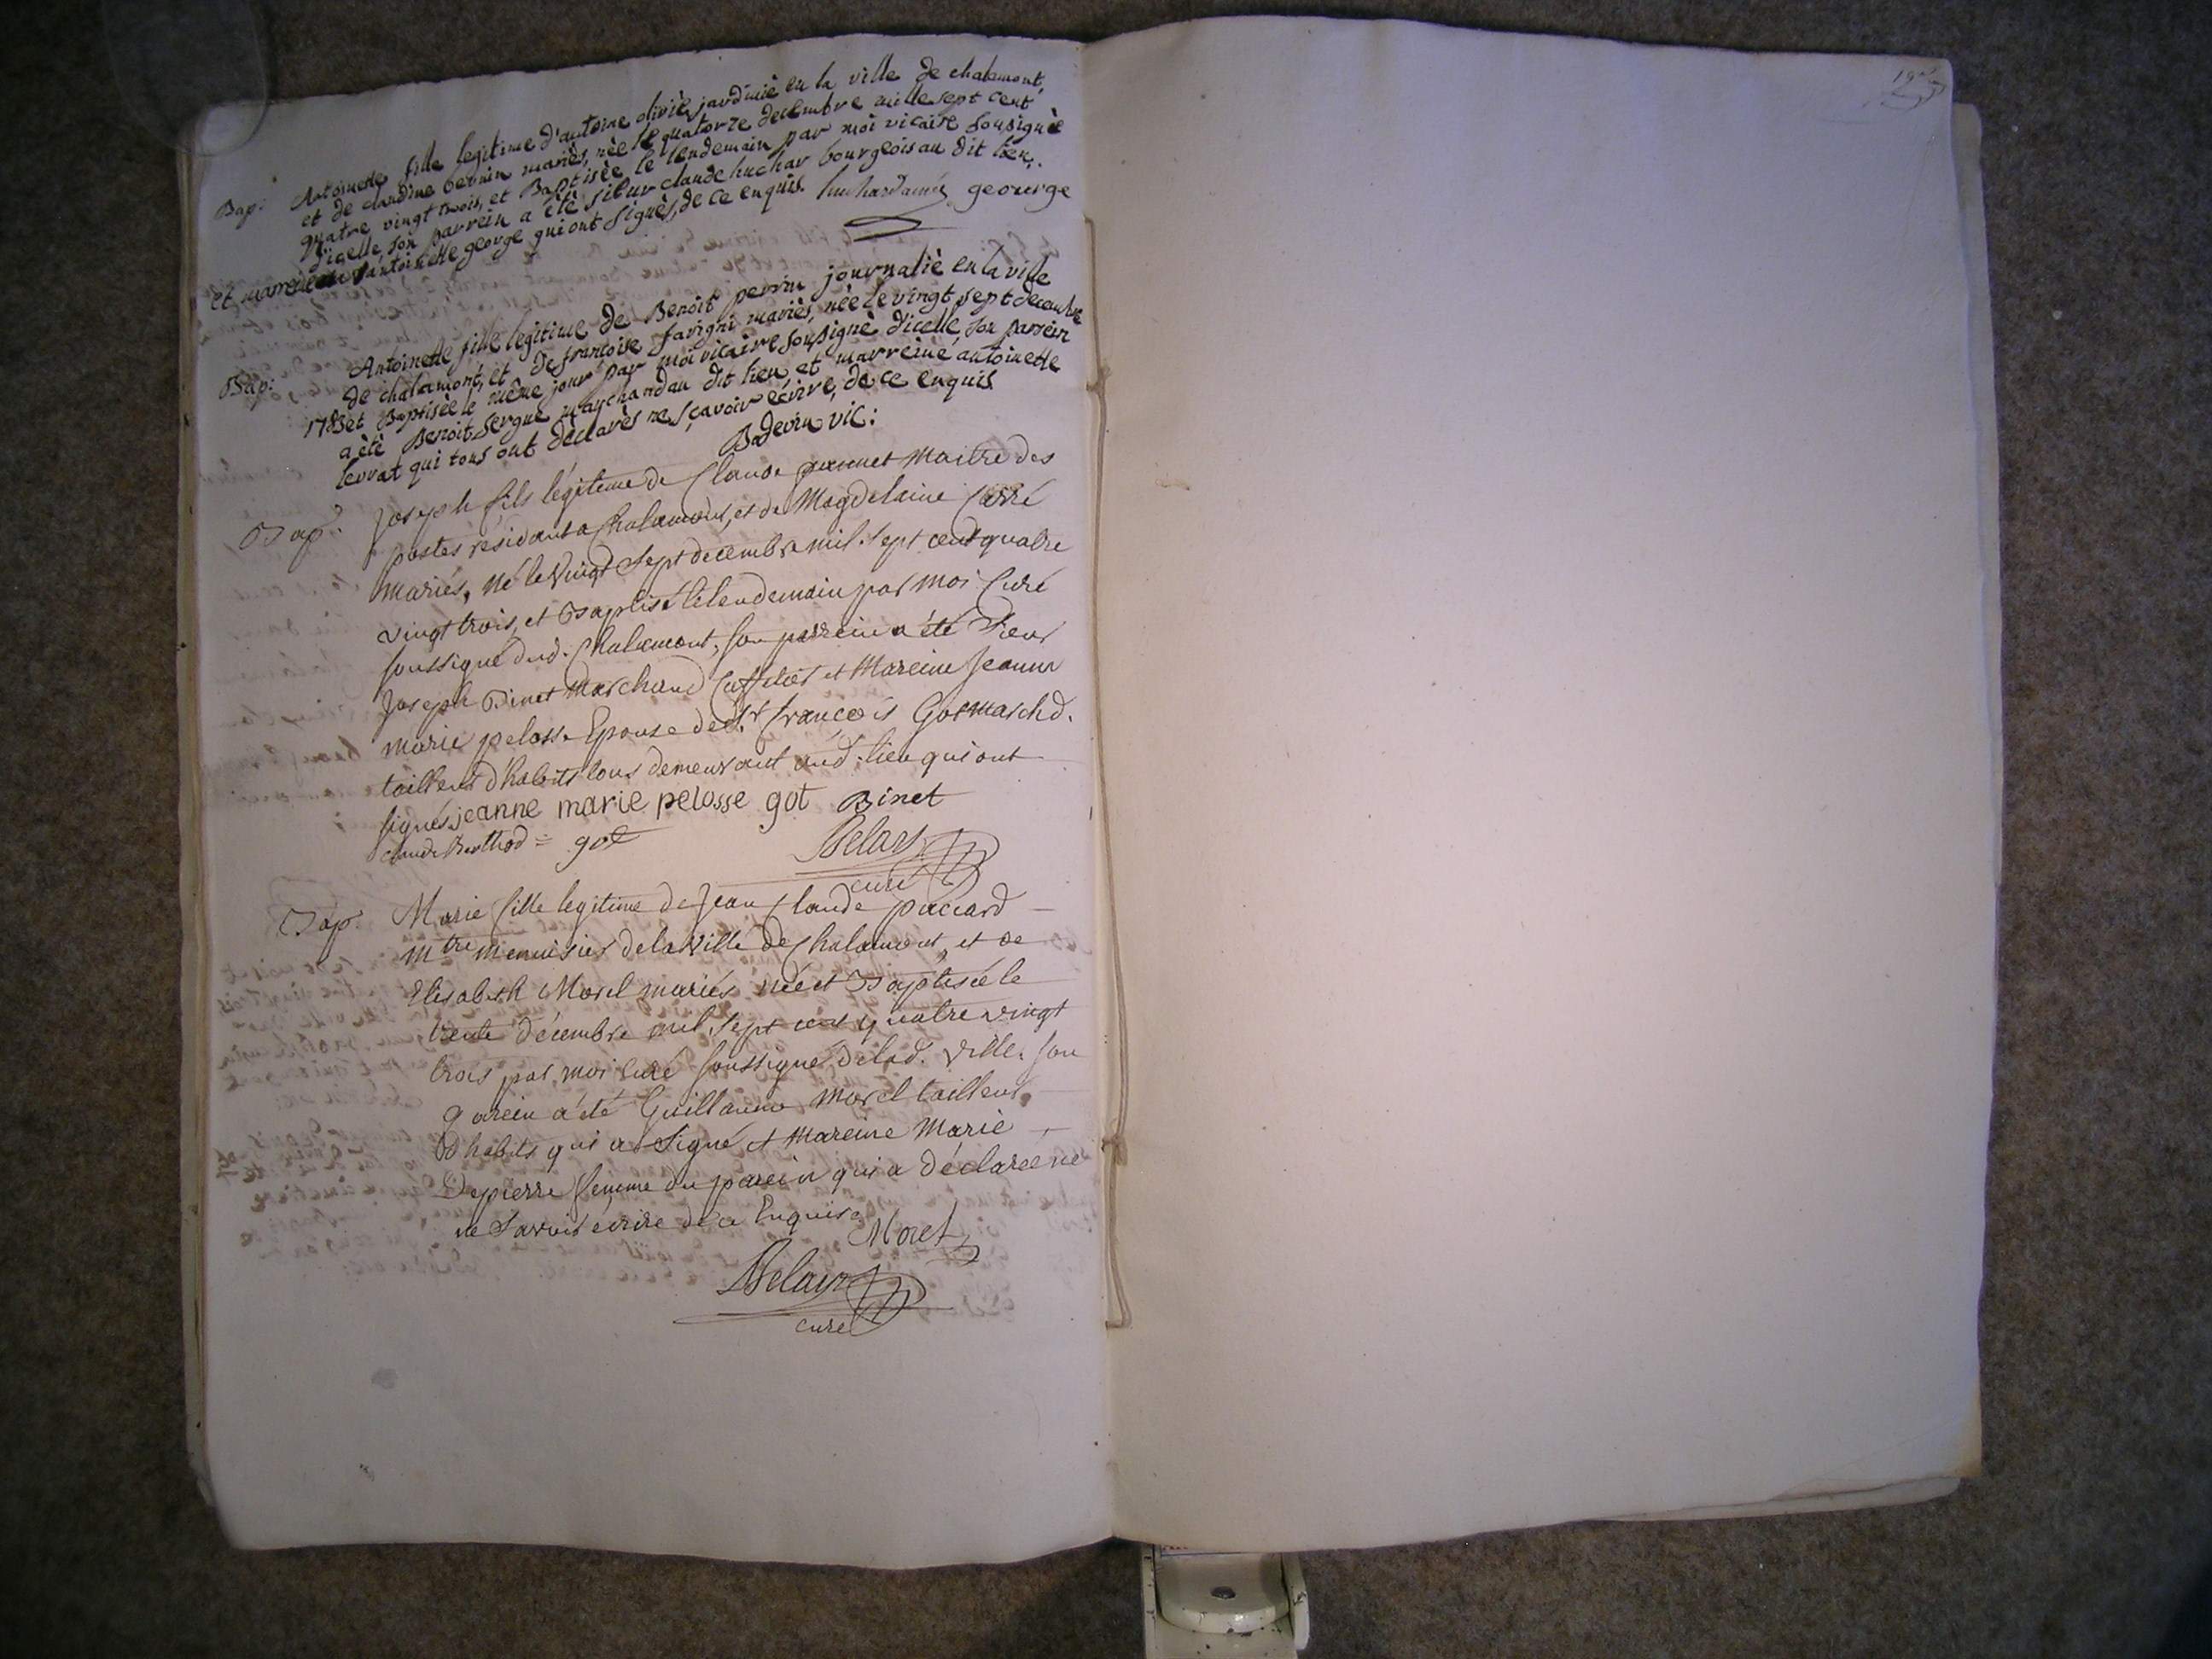 Bap: Antoinette fille legitime d'antoine olivie jardinié en la ville de chalamont,
et de claudine bernin mariès, née le quatorze decembre mille sept cent
quatre vingt trois, et Baptisèe le lendemain par moi vicaire sousignè
d'icelle, son parrein a étè sieur claude huchar bourgeois au dit lieu,
et marreine antoinette george qui ont signès, de ce enquis. huchardainé george
Bap: Antoinette fille legitime de Benoit perrin journaliè en la ville
de chalamont, et de francoise favigni mariès, nèe le vingt sept decembre
1783 et Baptisèe le même jour par moi vicaire sousignè d'icelle, son parrein
a étè Benoit sergue marchand au dit lieu, et marreine antoinette
levrat qui tous ont declarès ne sçavoir ècrire, de ce enquis.
Badevin vic:
Bap: Joseph fils légiteme de Claude maitre des
postes résidant a Chalamont, et de Magdelaine Carré
mariés, né le vingt sept decembre mil sept cent quatre
vingt trois, et Baptisé le lendemain par moi Curé
soussigné dud. Chalamont, son parrein a été Sieur
Joseph Binet marchand Caffetier et Mareine Jeanne
marie pelosse Epouse de Sr francois Got march.d
tailleur d'habits tous demeurant aud. lieu qui ont
signés. jeanne marie pelosse got Binet
claude Berthod = got
Delars
curé
Bap: Marie fille legitime de Jean Claude paccard
mtre menuisier de la Ville de Chalamont, et de
Elisabeth Morel mariés née et Baptisée le
trente décembre mil sept cent quatre vingt
trois par moi curé soussigné de lad. ville. son
parein a été Guillaume Morel tailleur
d'habits qui a signé et Mareine Marie
Depierre femme du parein qui a déclarée ne
ne savoir écrire de ce Enquise
Morel
curé